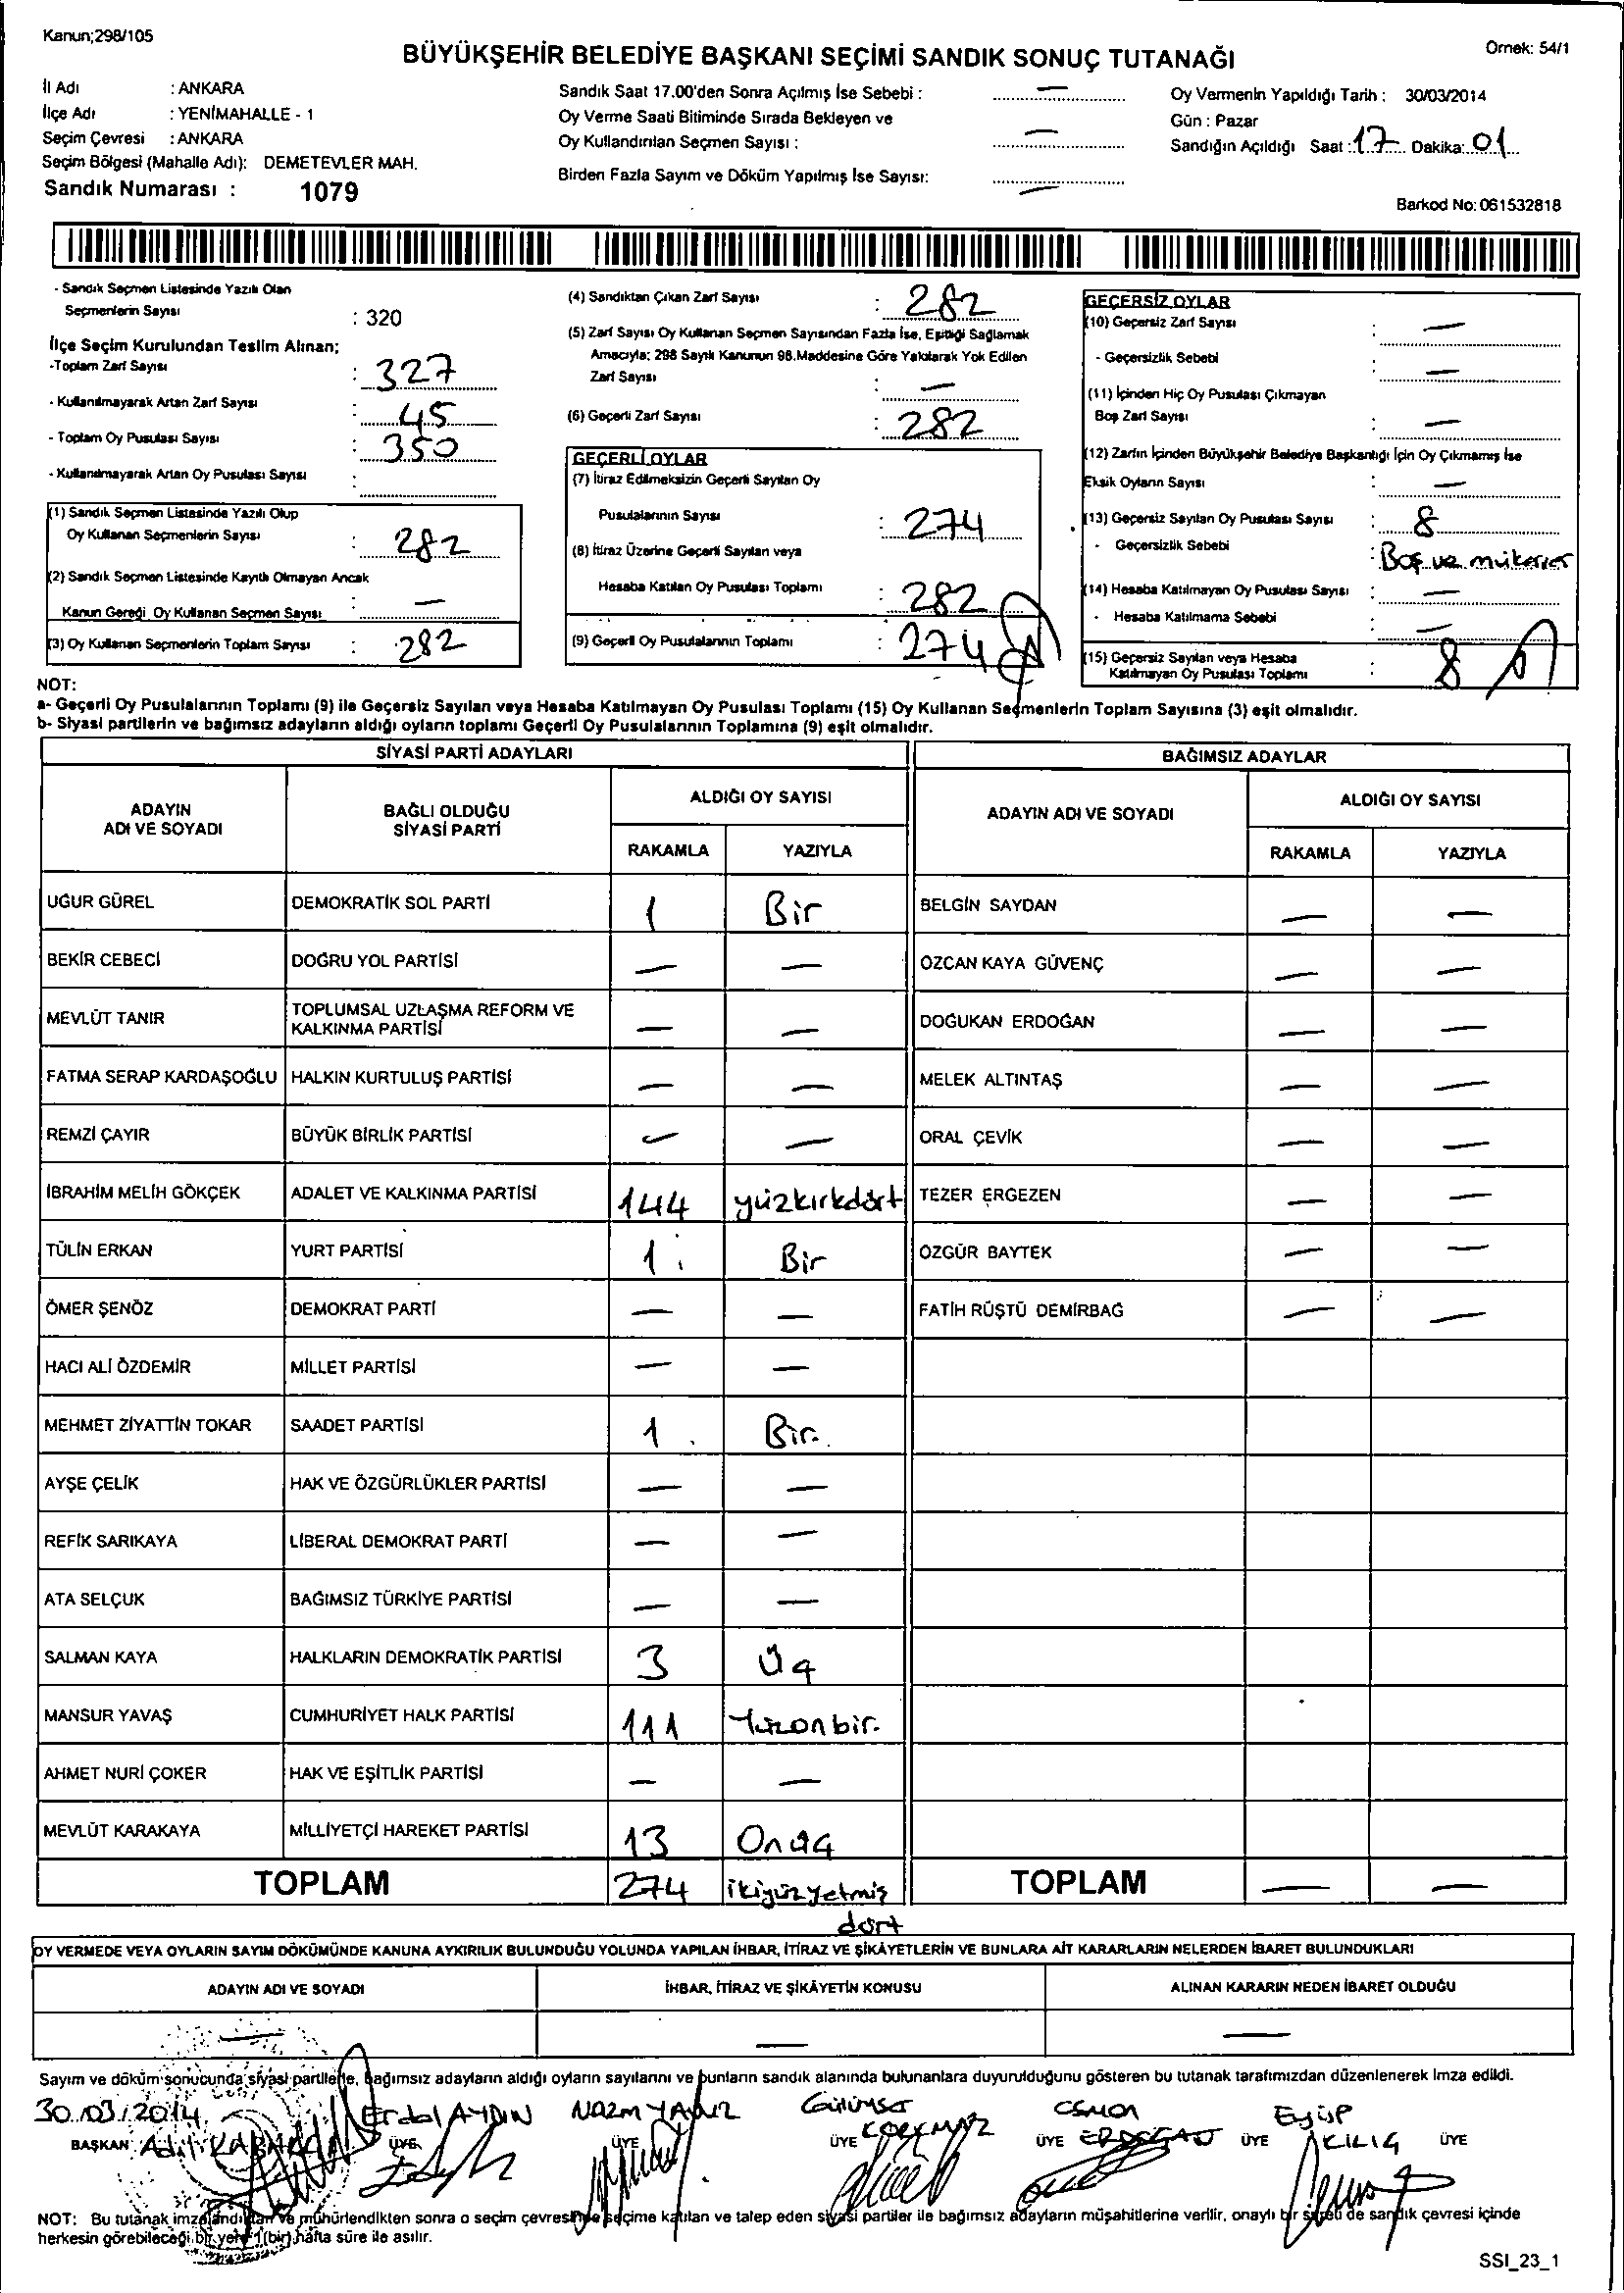 Kanun;298/105
Örnek: 54/1
BÜYÜKŞEHİR BELEDİYE BAŞKANI SEÇİMİ SANDIK SONUÇ TUTANAĞI
İl Adı : ANKARA
İlçe Adı : YENİMAHALLE - 1
Seçim Çevresi : ANKARA
Seçim Bölgesi (Mahalle Adı): DEMETEVLER MAH.
Sandık Numarası : 1079
Sandık Saat 17.00'den Sonra Açılmış İse Sebebi : —
Oy Verme Saati Bitiminde Sırada Bekleyen ve
Oy Kullandırılan Seçmen Sayısı : —
Birden Fazla Sayım ve Döküm Yapılmış İse Sayısı: —
Oy Vermenin Yapıldığı Tarih : 30/03/2014
Gün : Pazar
Sandığın Açıldığı Saat : 17 Dakika: 01
Barkod No: 061532818
- Sandık Seçmen Listesinde Yazılı Olan
Seçmenlerin Sayısı : 320
İlçe Seçim Kurulundan Teslim Alınan;
-Toplam Zarf Sayısı : 327
- Kullanılmayarak Artan Zarf Sayısı : 45
- Toplam Oy Pusulası Sayısı : 350
- Kullanılmayarak Artan Oy Pusulası Sayısı :
(1) Sandık Seçmen Listesinde Yazılı Olup
Oy Kullanan Seçmenlerin Sayısı : 282
(2) Sandık Seçmen Listesinde Kayıtlı Olmayan Ancak
Kanun Gereği Oy Kullanan Seçmen Sayısı : —
(3) Oy Kullanan Seçmenlerin Toplam Sayısı : 282
(4) Sandıktan Çıkan Zarf Sayısı : 282
(5) Zarf Sayısı Oy Kullanan Seçmen Sayısından Fazla İse, Eşitliği Sağlamak
Amacıyla; 298 Sayılı Kanunun 98.Maddesine Göre Yakılarak Yok Edilen
Zarf Sayısı : —
(6) Geçerli Zarf Sayısı : 282
GEÇERLİ OYLAR
(7) İtiraz Edilmeksizin Geçerli Sayılan Oy
Pusulalarının Sayısı : 274
(8) İtiraz Üzerine Geçerli Sayılan veya
Hesaba Katılan Oy Pusulası Toplamı : 282
(9) Geçerli Oy Pusulalarının Toplamı : 274
GEÇERSİZ OYLAR
(10) Geçersiz Zarf Sayısı : —
- Geçersizlik Sebebi : —
(11) İçinden Hiç Oy Pusulası Çıkmayan
Boş Zarf Sayısı : —
(12) Zarfın İçinden Büyükşehir Belediye Başkanlığı İçin Oy Çıkmamış İse
Eksik Oyların Sayısı : —
(13) Geçersiz Sayılan Oy Pusulası Sayısı : 8
- Geçersizlik Sebebi : Boş ve mükerrer
(14) Hesaba Katılmayan Oy Pusulası Sayısı : —
- Hesaba Katılmama Sebebi : —
(15) Geçersiz Sayılan veya Hesaba
Katılmayan Oy Pusulası Toplamı : 8
NOT:
a- Geçerli Oy Pusulalarının Toplamı (9) ile Geçersiz Sayılan veya Hesaba Katılmayan Oy Pusulası Toplamı (15) Oy Kullanan Seçmenlerin Toplam Sayısına (3) eşit olmalıdır.
b- Siyasi partilerin ve bağımsız adayların aldığı oyların toplamı Geçerli Oy Pusulalarının Toplamına (9) eşit olmalıdır.
SİYASİ PARTİ ADAYLARI BAĞIMSIZ ADAYLAR
ADAYIN ADI VE SOYADI BAĞLI OLDUĞU SİYASİ PARTİ ALDIĞI OY SAYISI ADAYIN ADI VE SOYADI ALDIĞI OY SAYISI
RAKAMLA YAZIYLA RAKAMLA YAZIYLA
UĞUR GÜREL DEMOKRATİK SOL PARTİ 1 Bir BELGİN SAYDAN — —
BEKİR CEBECİ DOĞRU YOL PARTİSİ — — ÖZCAN KAYA GÜVENÇ — —
MEVLÜT TANIR TOPLUMSAL UZLAŞMA REFORM VE KALKINMA PARTİSİ — — DOĞUKAN ERDOĞAN — —
FATMA SERAP KARDAŞOĞLU HALKIN KURTULUŞ PARTİSİ — — MELEK ALTINTAŞ — —
REMZİ ÇAYIR BÜYÜK BİRLİK PARTİSİ — — ORAL ÇEVİK — —
İBRAHİM MELİH GÖKÇEK ADALET VE KALKINMA PARTİSİ 144 yüzkırkdört TEZER ERGEZEN — —
TÜLİN ERKAN YURT PARTİSİ 1 Bir ÖZGÜR BAYTEK — —
ÖMER ŞENÖZ DEMOKRAT PARTİ — — FATİH RÜŞTÜ DEMİRBAĞ — —
HACI ALİ ÖZDEMİR MİLLET PARTİSİ — —
MEHMET ZİYATTİN TOKAR SAADET PARTİSİ 1 Bir
AYŞE ÇELİK HAK VE ÖZGÜRLÜKLER PARTİSİ — —
REFİK SARIKAYA LİBERAL DEMOKRAT PARTİ — —
ATA SELÇUK BAĞIMSIZ TÜRKİYE PARTİSİ — —
SALMAN KAYA HALKLARIN DEMOKRATİK PARTİSİ 3 Üç
MANSUR YAVAŞ CUMHURİYET HALK PARTİSİ 111 Yüzonbir.
AHMET NURİ ÇOKER HAK VE EŞİTLİK PARTİSİ — —
MEVLÜT KARAKAYA MİLLİYETÇİ HAREKET PARTİSİ 13 Onüç
TOPLAM 274 ikiyüzyetmiş dört TOPLAM — —
OY VERMEDE VEYA OYLARIN SAYIM DÖKÜMÜNDE KANUNA AYKIRILIK BULUNDUĞU YOLUNDA YAPILAN İHBAR, İTİRAZ VE ŞİKÂYETLERİN VE BUNLARA AİT KARARLARIN NELERDEN İBARET BULUNDUKLARI
ADAYIN ADI VE SOYADI İHBAR, İTİRAZ VE ŞİKÂYETİN KONUSU ALINAN KARARIN NEDEN İBARET OLDUĞU
— — —
Sayım ve döküm sonucunda siyasi partilerle, bağımsız adayların aldığı oyların sayılarını ve bunların sandık alanında bulunanlara duyurulduğunu gösteren bu tutanak tarafımızdan düzenlenerek imza edildi.
30.03.2014 Erdal AYDIN NAZMİ YAVUZ Gülümser KORKMAZ OSMAN ERDOĞAN Eyüp KILIÇ
BAŞKAN Adil ÜYE ÜYE ÜYE ÜYE ÜYE ÜYE
NOT: Bu tutanak imzalandıktan ve mühürlendikten sonra o seçim çevresinde seçime katılan ve talep eden siyasi partiler ile bağımsız adayların müşahitlerine verilir, onaylı bir sureti de sandık çevresi içinde
herkesin görebileceği bir yere 1 (bir) hafta süre ile asılır.
SSI_23_1